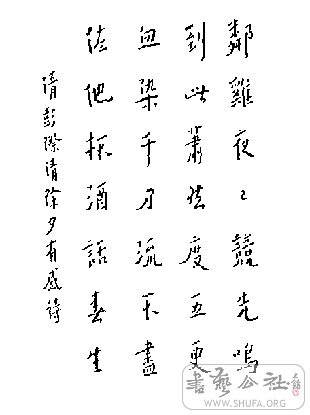 鄰雞夜〻競先鳴
到此蕭然度五更
血染千刀流不盡
佐他杯酒話春生
清彭際清除夕有感詩
書藝公社
WWW.SHUFA.ORG